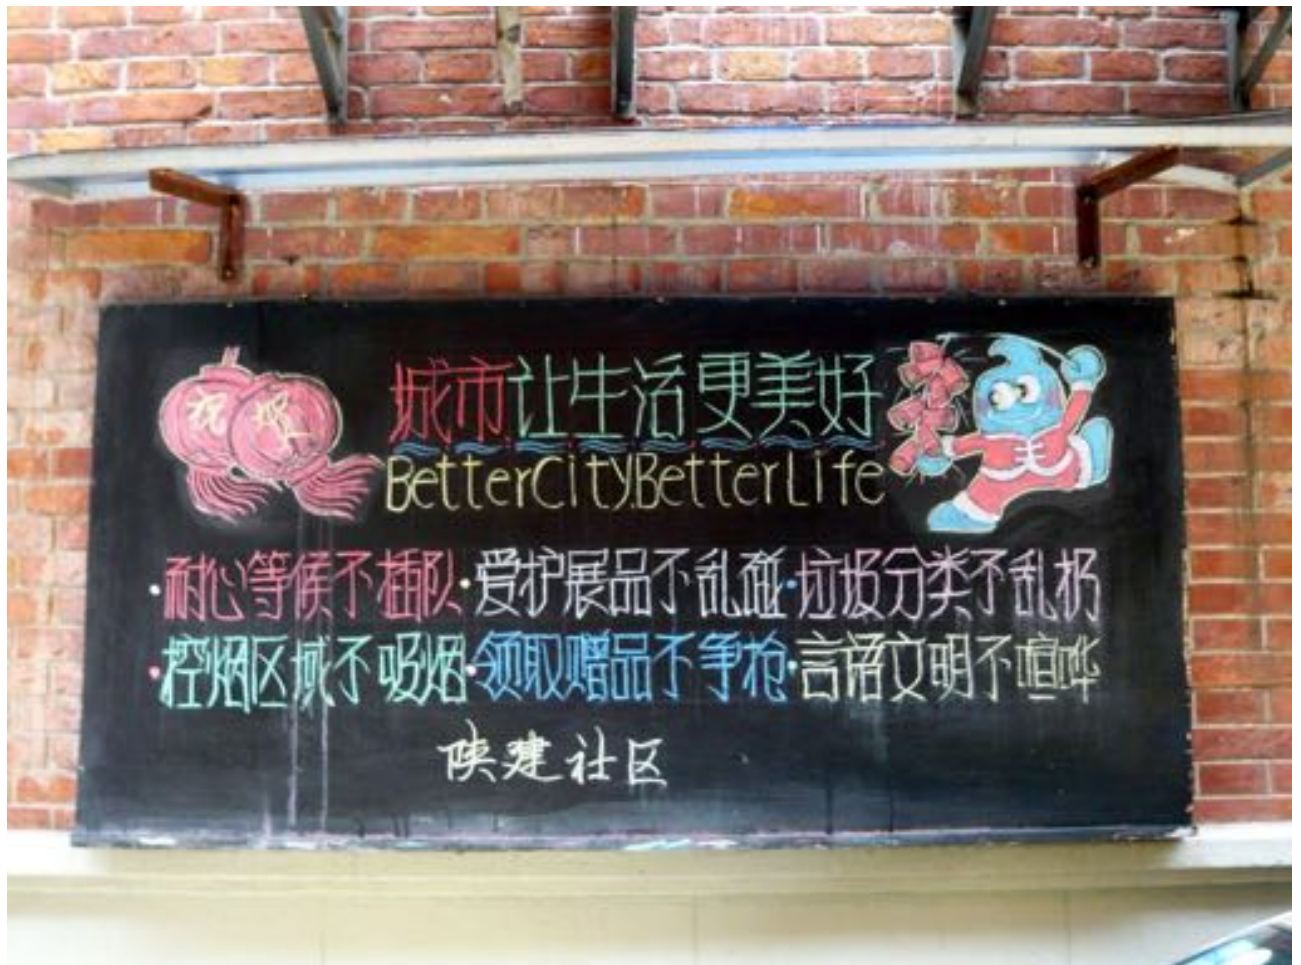 城市让生活更美好
BetterCity,BetterLife
·耐心等候不插队·爱护展品不乱碰·垃圾分类不乱扔
·控烟区域不吸烟·领取赠品不争抢·言语文明不喧哗
陕建社区